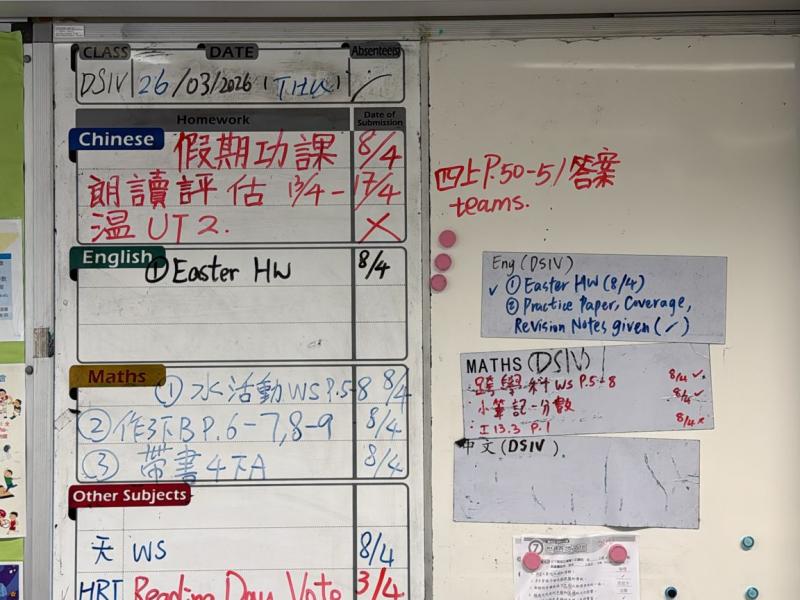 CLASS DATE Absentees
DSIV 26/03/2026 (THU) /
Homework Date of Submission
Chinese 假期功課 8/4
朗讀評估 13/4-17/4
溫UT2. ×
English ①Easter HW 8/4
Maths ①水活動WS P.5-8 8/4
②作3下B P.6-7,8-9 8/4
③帶書4下A 8/4
Other Subjects
WS 8/4
HRT Reading Day Vote 3/4
四上P.50-51答案
teams.
Eng (DSIV)
✓ ① Easter HW (8/4)
② Practice Paper, Coverage,
Revision Notes given (✓)
MATHS (DSIV)
跨學科WS P.5-8 8/4 ✓
小筆記-分數 8/4 ✓
I 13.3 P.1 8/4 ×
中文(DSIV)
7